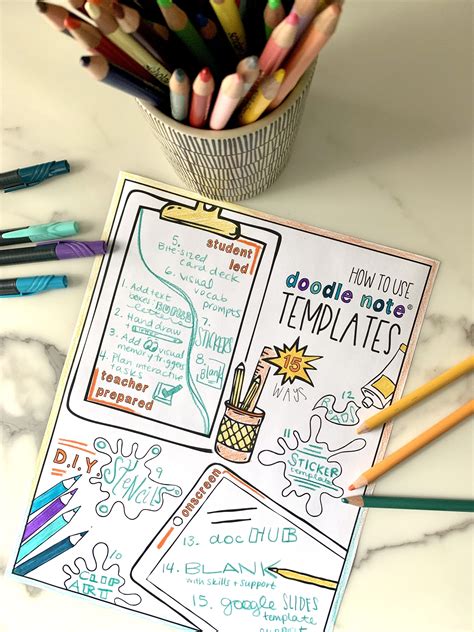 HOW TO USE
doodle note®
TEMPLATES
15
WAYS
student
led
5.
Bite-sized
card deck
6. visual
vocab
prompts
7.
STICKERS
8.
Blank
1. Add text
boxes
2. Hand draw
3. Add visual
memory triggers
4. Plan interactive
tasks
teacher
prepared
D.I.Y
9
Stencils
10
CLIP
ART
11
STICKER
template
12
onscreen
13. doc HUB
14. BLANK
with skills + support
15. google SLIDES
template